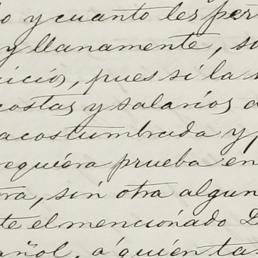 o y cuanto les per
y llanamente, so
icio, pues si la
costas y salarios d
acostumbrada y p
requiera prueba en
tra, sin otra algun
te el mencionado D
añol, a quien tan